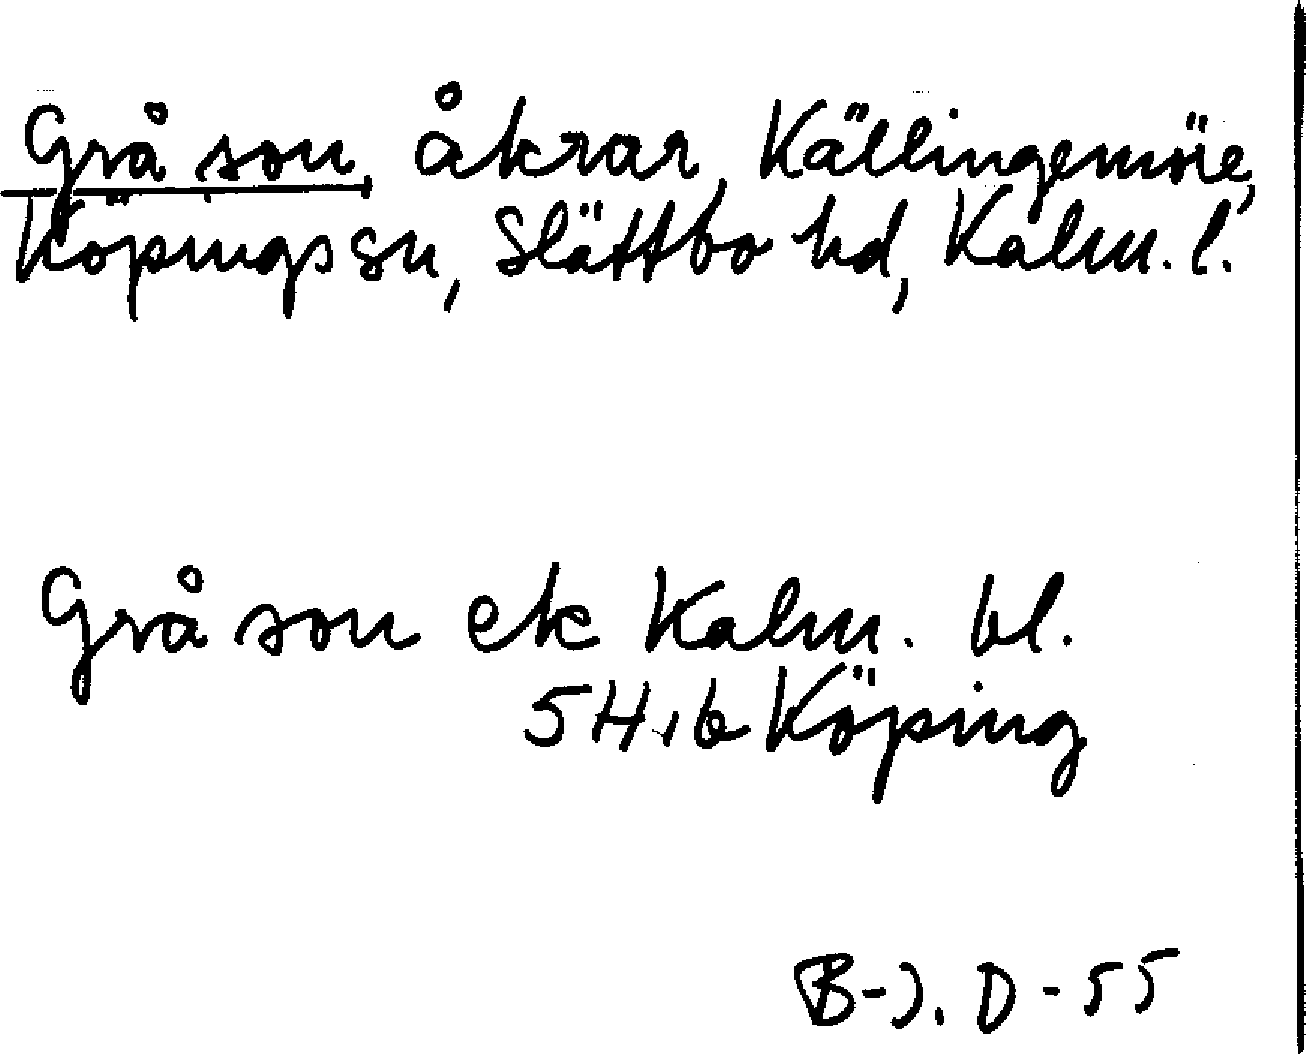 Grå son, åkrar, Källingemöre,
Köpings sn, Slättbo hd, Kalm. l.
Grå son ek Kalm. bl.
5H, 6 Köping
B-J. D - 55